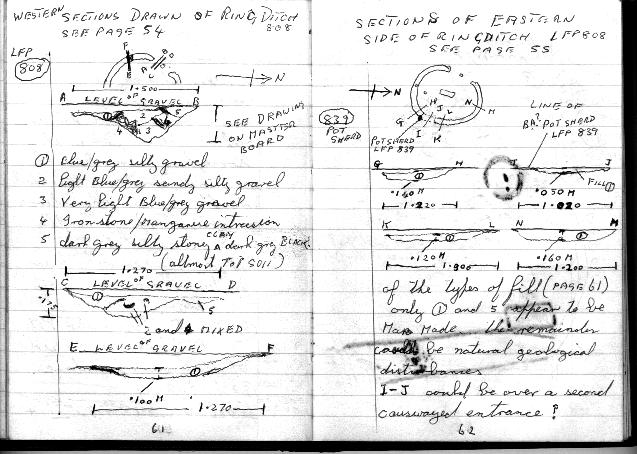 WESTERN SECTIONS DRAWN OF RINGDITCH
808
SEE PAGE 54
LFP
808
F
E
A
B
C
D
N
1·500
A LEVEL OF GRAVEL B
1
2
5
4
3
SEE DRAWING
ON MASTER
BOARD
1 Blue/grey silty gravel
2 Light Blue/grey sandy silty gravel
3 Very light Blue/grey gravel
4 Ironstone/Manganise intrusion
5 dark grey silty stoney CLAY ^ dark grey BLACK
(allmost TOP SOIL)
1·270
C LEVEL OF GRAVEL D
·175
1
5
2 and 4 MIXED
E LEVEL OF GRAVEL F
1
·100M
1·270
61
SECTIONS OF EASTERN
SIDE OF RINGDITCH LFP808
SEE PAGE 55
N
839
POT
SHERD
H
N
J
L
M
G
I
K
POTSHERD
LFP 839
LINE OF
BA? POTSHERD
LFP 839
G H I J
1
·160M
1·220
·050M
FILL 1
1·020
K L N M
1
1
·120M
1·300
·160M
1·200
of the types of fill (PAGE 61)
only 1 and 5 appear to be
Man Made the remainder
could be natural geological
disturbances
I-J could be over a second
causwayed entrance?
62